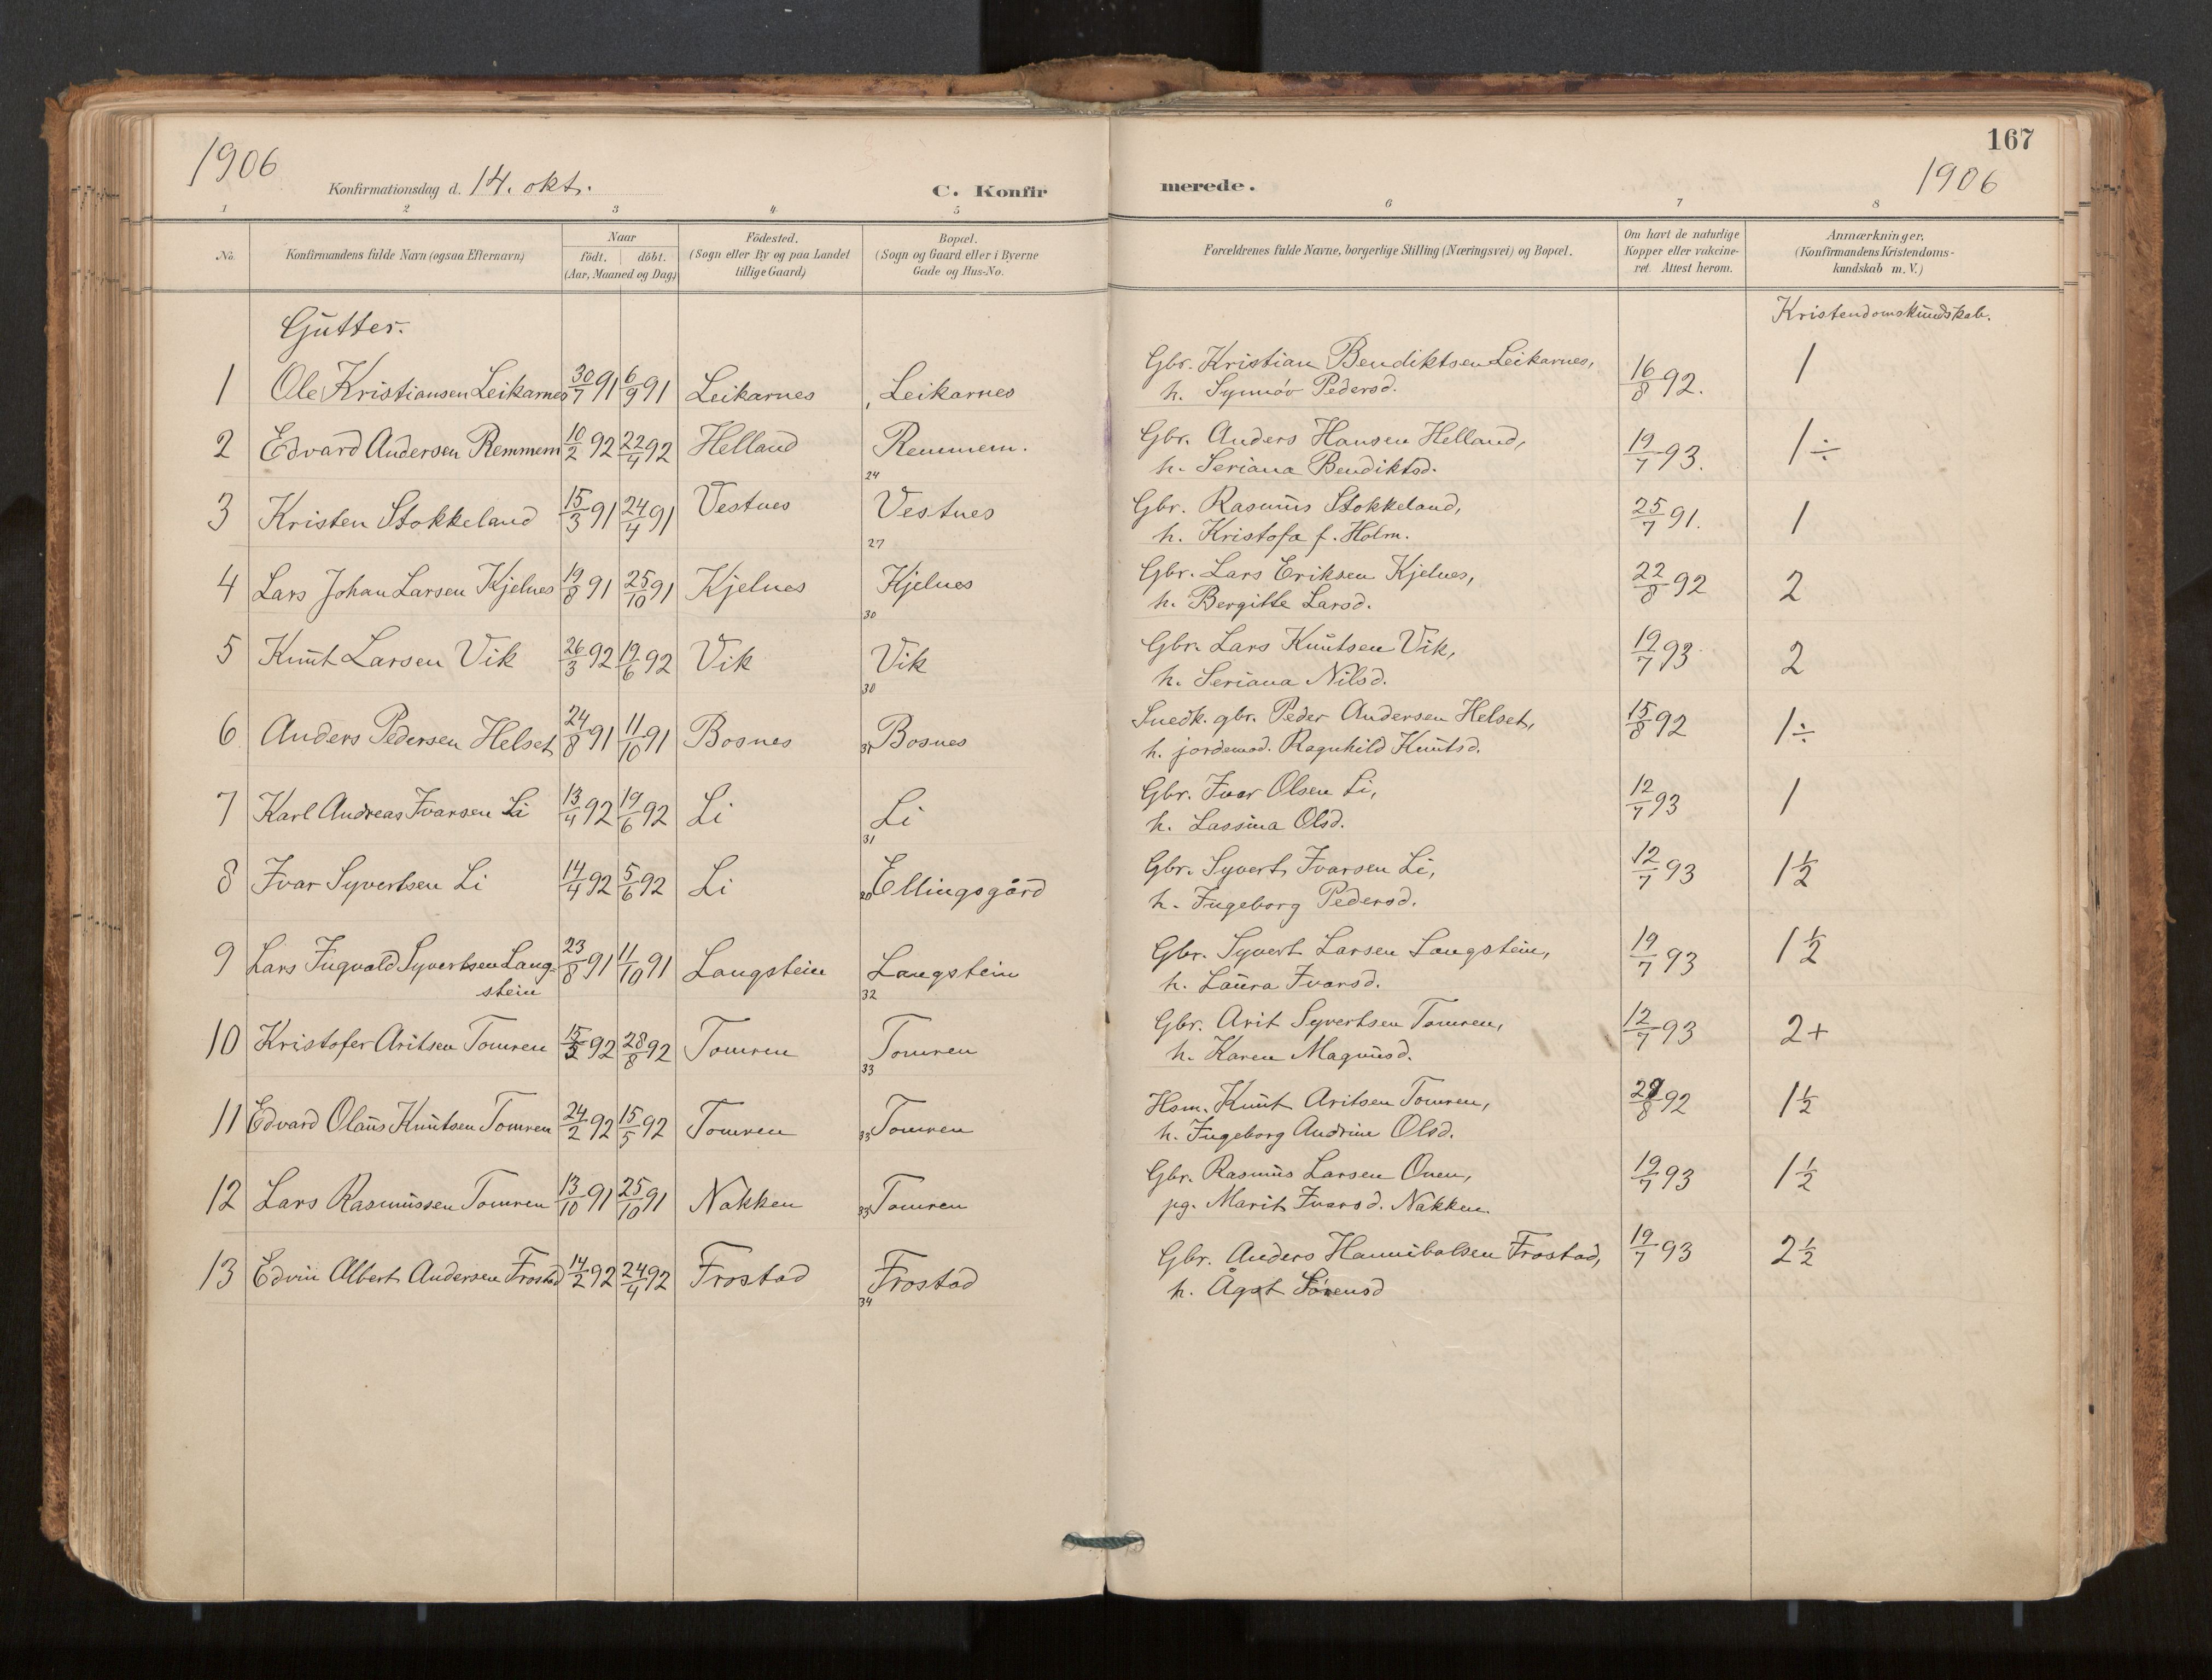 167
1906 1906
Konfirmationsdag d. 14. okt. C. Konfir merede.
1 2 3 4 5 6 7 8
No. Konfirmandens fulde Navn (ogsaa Efternavn) Naar födt. döbt. (Aar, Maaned og Dag) Födested. (Sogn eller By og paa Landet tillige Gaard) Bopæl. (Sogn og Gaard eller i Byerne Gade og Hus-No. Forældrenes fulde Navne, borgerlige Stilling (Næringsvei) og Bopæl. Om havt de naturlige Kopper eller vakcineret. Attest herom. Anmærkninger, (Konfirmandens Kristendomskundskab m. V.)
Gutter. Kristendomskundskab.
1 Ole Kristiansen Leikarnes 30/7 91 6/9 91 Leikarnes Leikarnes Gbr. Kristian Bendiktsen Leikarnes, 16/8 92. 1
h. Synnöv Pedersd.
2 Edvard Andersen Remmem 10/2 92 22/4 92 Helland Remmem. 24 Gbr. Anders Hansen Helland, 19/7 93. 1÷
h. Seriana Bendiktsd.
3 Kristen Stokkeland 15/3 91 24/4 91 Vestnes Vestnes 27 Gbr. Rasmus Stokkeland, 25/7 91. 1
h. Kristofa f. Holm.
4 Lars Johan Larsen Kjelnes 19/8 91 25/10 91 Kjelnes Kjelnes 30 Gbr. Lars Eriksen Kjelnes, 22/8 92 2
h. Bergitte Larsd.
5 Knut Larsen Vik 26/3 92 19/6 92 Vik Vik 30 Gbr. Lars Knutsen Vik, 19/7 93 2
h. Seriana Nilsd.
6 Anders Pedersen Helset 24/8 91 11/10 91 Bosnes 31 Bosnes Snedk. gbr. Peder Andersen Helset, 15/8 92 1÷
h. jordemod. Ragnhild Knutsd.
7 Karl Andreas Ivarsen Li 13/4 92 19/6 92 Li Li 31 Gbr. Ivar Olsen Li, 12/7 93 1
h. Lassina Olsd.
8 Ivar Syvertsen Li 14/4 92 5/6 92 Li 20 Ellingsgård Gbr. Syvert Ivarsen Li, 12/7 93 1½
h. Ingeborg Pedersd.
9 Lars Ingvald Syvertsen Lang= 23/8 91 11/10 91 Langstein Langstein 32 Gbr. Syvert Larsen Langstein, 19/7 93 1½
stein h. Laura Ivarsd.
10 Kristofer Aritsen Tomren 15/5 92 28/8 92 Tomren Tomren 33 Gbr. Arit Syvertsen Tomren, 12/7 93 2+
h. Karen Magnusd.
11 Edvard Olaus Knutsen Tomren 24/2 92 15/5 92 Tomren 33 Tomren Hsm. Knut Aritsen Tomren, /8 92 1½
h. Ingeborg Andrine Olsd.
12 Lars Rasmussen Tomren 13/10 91 25/10 91 Nakken 33 Tomren Gbr. Rasmus Larsen Oven, 19/7 93 1½
pg. Marit Ivarsd. Nakken.
13 Edvin Albert Andersen Frostad 14/2 92 24/4 92 Frostad Frostad 34 Gbr. Anders Hannibalsen Frostad, 19/7 93 2½
h. Ågot Sörensd